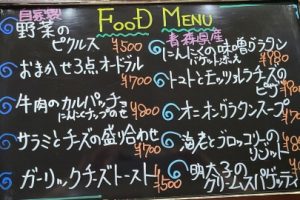 FOOD MENU
自家製
野菜の
ピクルス ¥500
おまかせ3点オードブル
¥700
牛肉のカルパッチョ
にんにくチップのせ ¥800
サラミとチーズの盛り合わせ
¥700
ガーリックチーズトースト ¥500
青森県産
にんにくの味噌グラタン
バケット添え
トマトとモッツァレラチーズの
オニオングラタンスープ
¥700
海老とブロッコリーの
リゾット
明太子の
クリームスパゲッティ